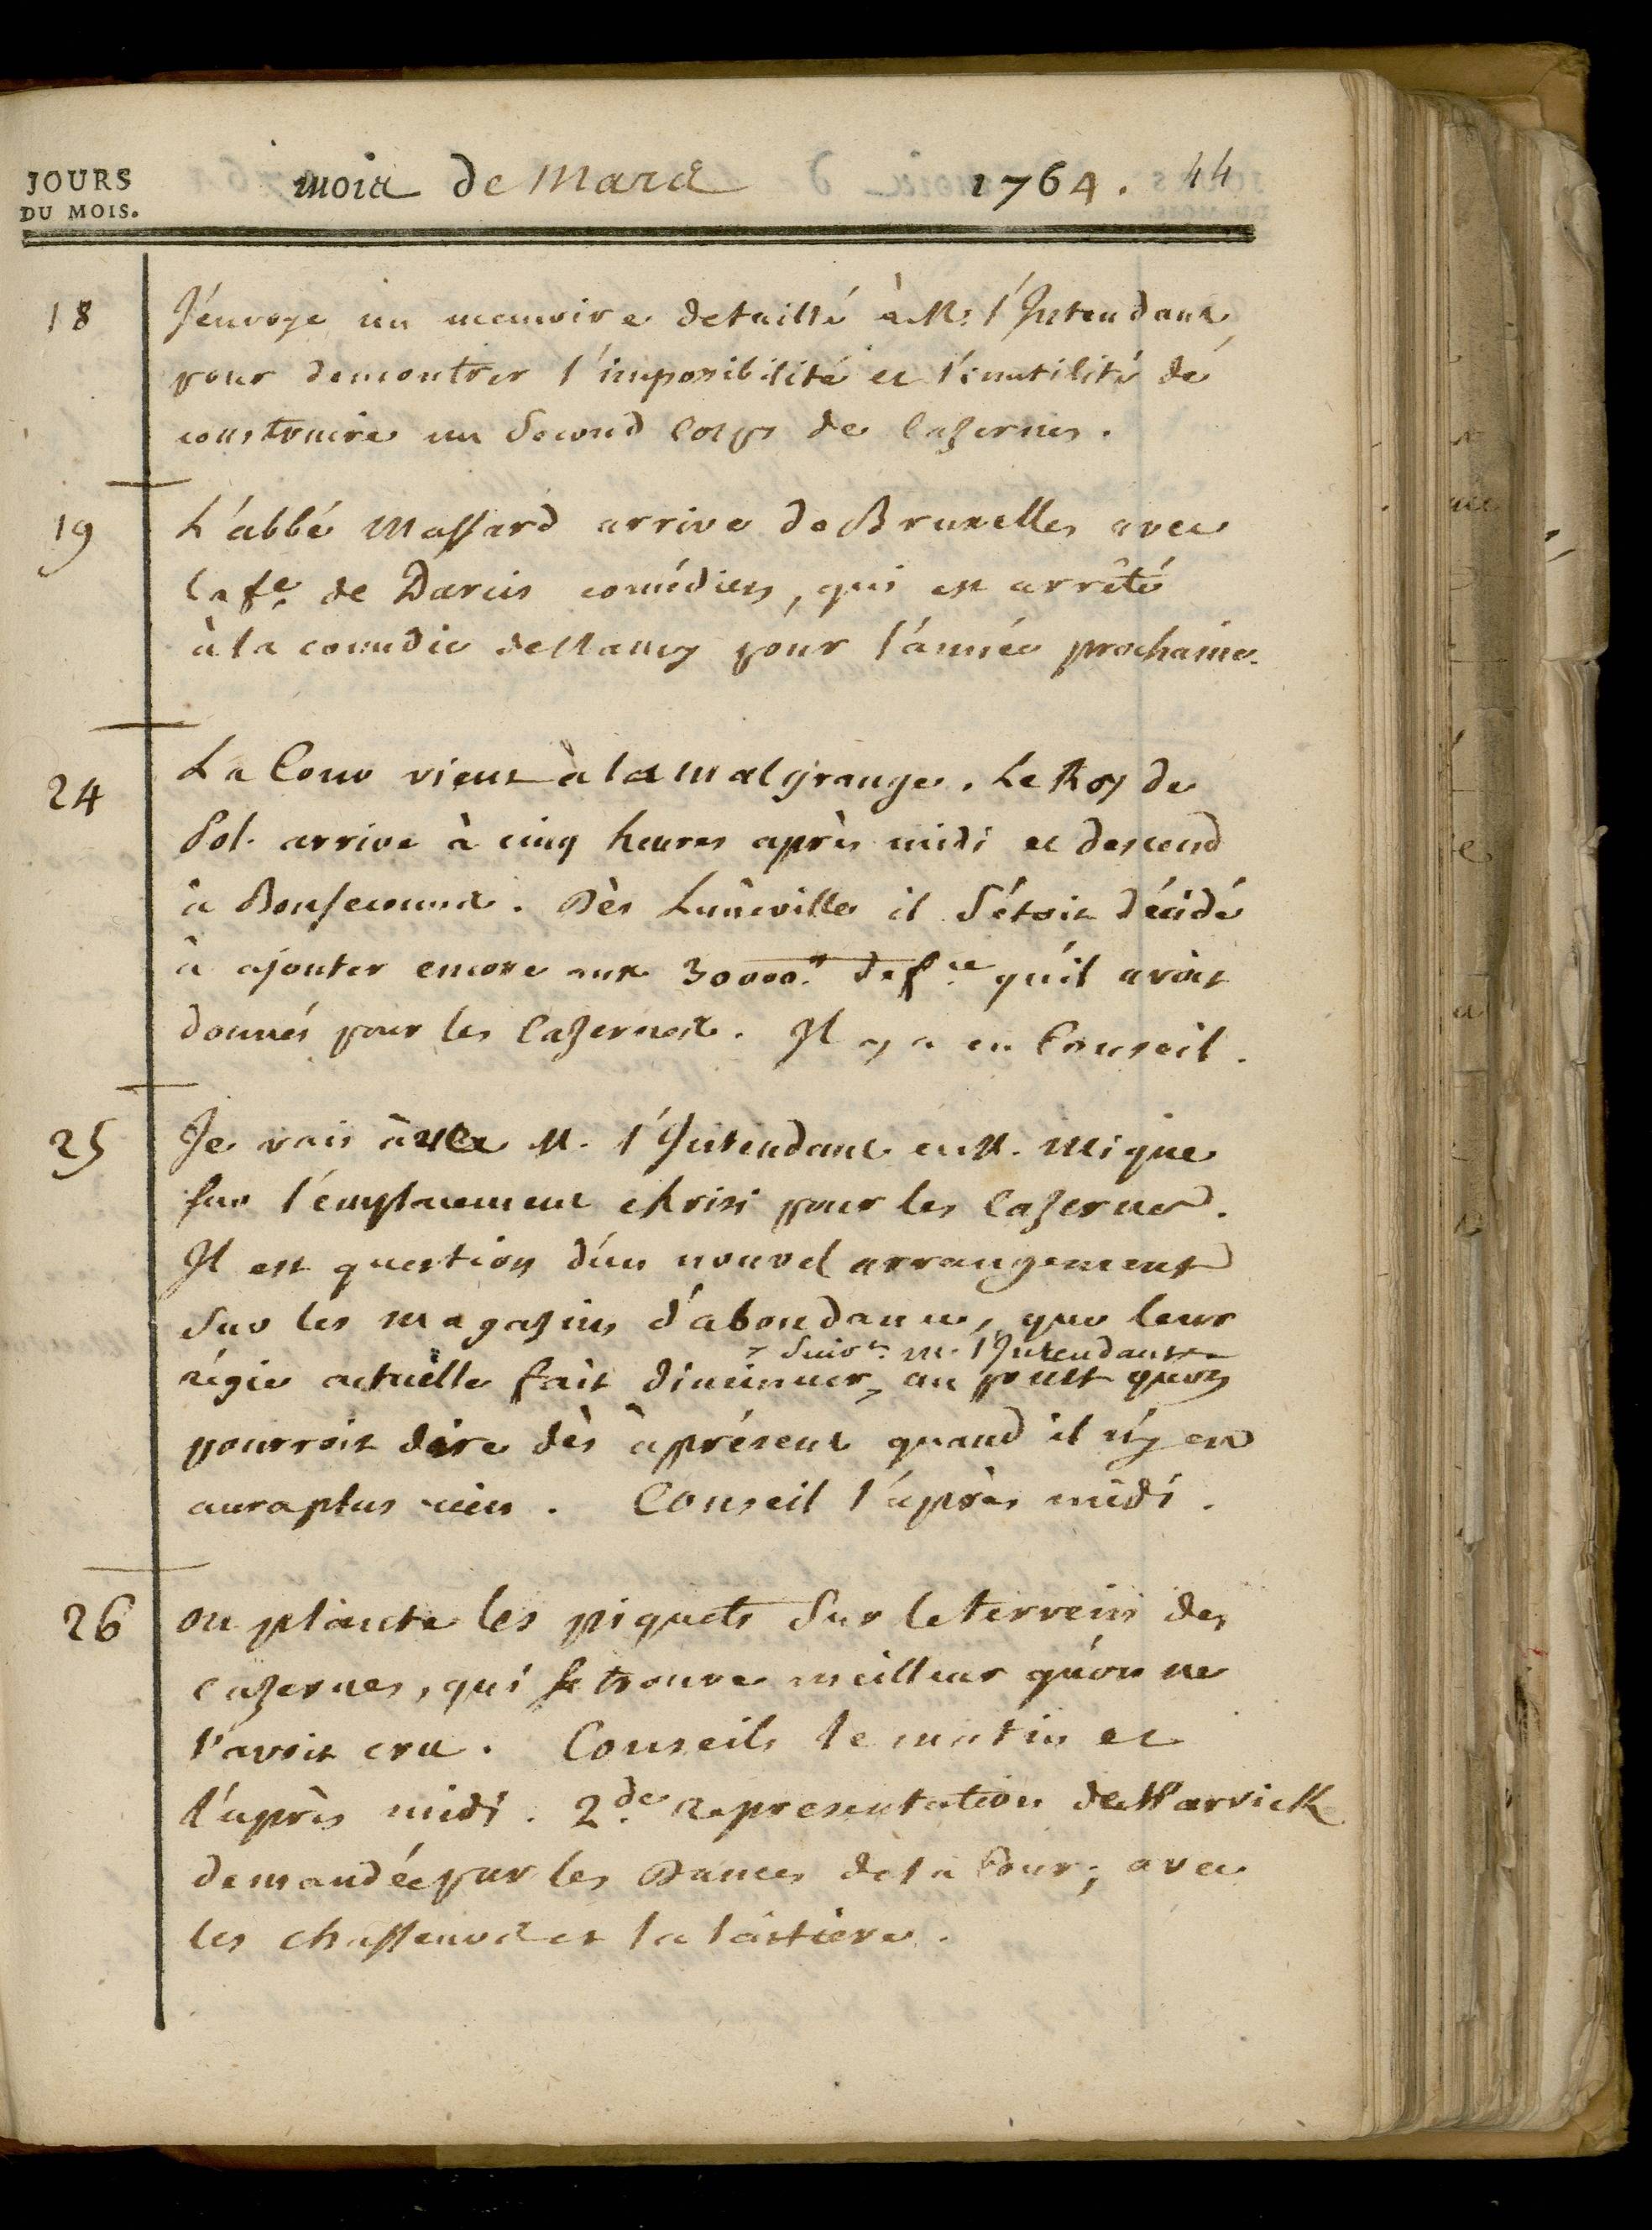 JOURS
DU MOIS.
mois de Mars 1764. 44
18 J'envoye un memoire detaillé à M. l'Intendant
pour demontrer l'impossibilité et l'inutilité de
construire un Second Corps de Cazernes.
19 L'abbé Massard arrive de Bruxelles avec
la fe. de Darcis comédien, qui est arrêté
à la comedie de Nancy pour l'année prochaine.
24 La Cour vient à la Malgrange. Le Roy de
Pol. arrive à cinq heures après midi et descend
à Bonsecours. Dès Lunéville il S'étoit décidé
à ajouter encore aux 30000.# de fce qu'il avoit
donnés pour les Cazernes. Il y a eu Conseil.
25 Je vais avec M. l'Intendant et M. Mique
sur l'emplacement choisi pour les Cazernes.
Il est question d'un nouvel arrangement
Sur les magazins d'abondance, que leur
Suivt. M. l'Intendant
régie actuelle fait diminuer, au point qu'on
pourroit dire dès àprésent quand il n'y en
aura plus rien. Conseil l'après midi.
26 on plante les piquets Sur le terrein des
cazernes, qui se trouve meilleur qu'on ne
l'avoit cru. Conseils le matin et
l'après midi. 2.de representation de Warvick
demandée par les Dames de la Cour; avec
les chasseurs et la laitiere.